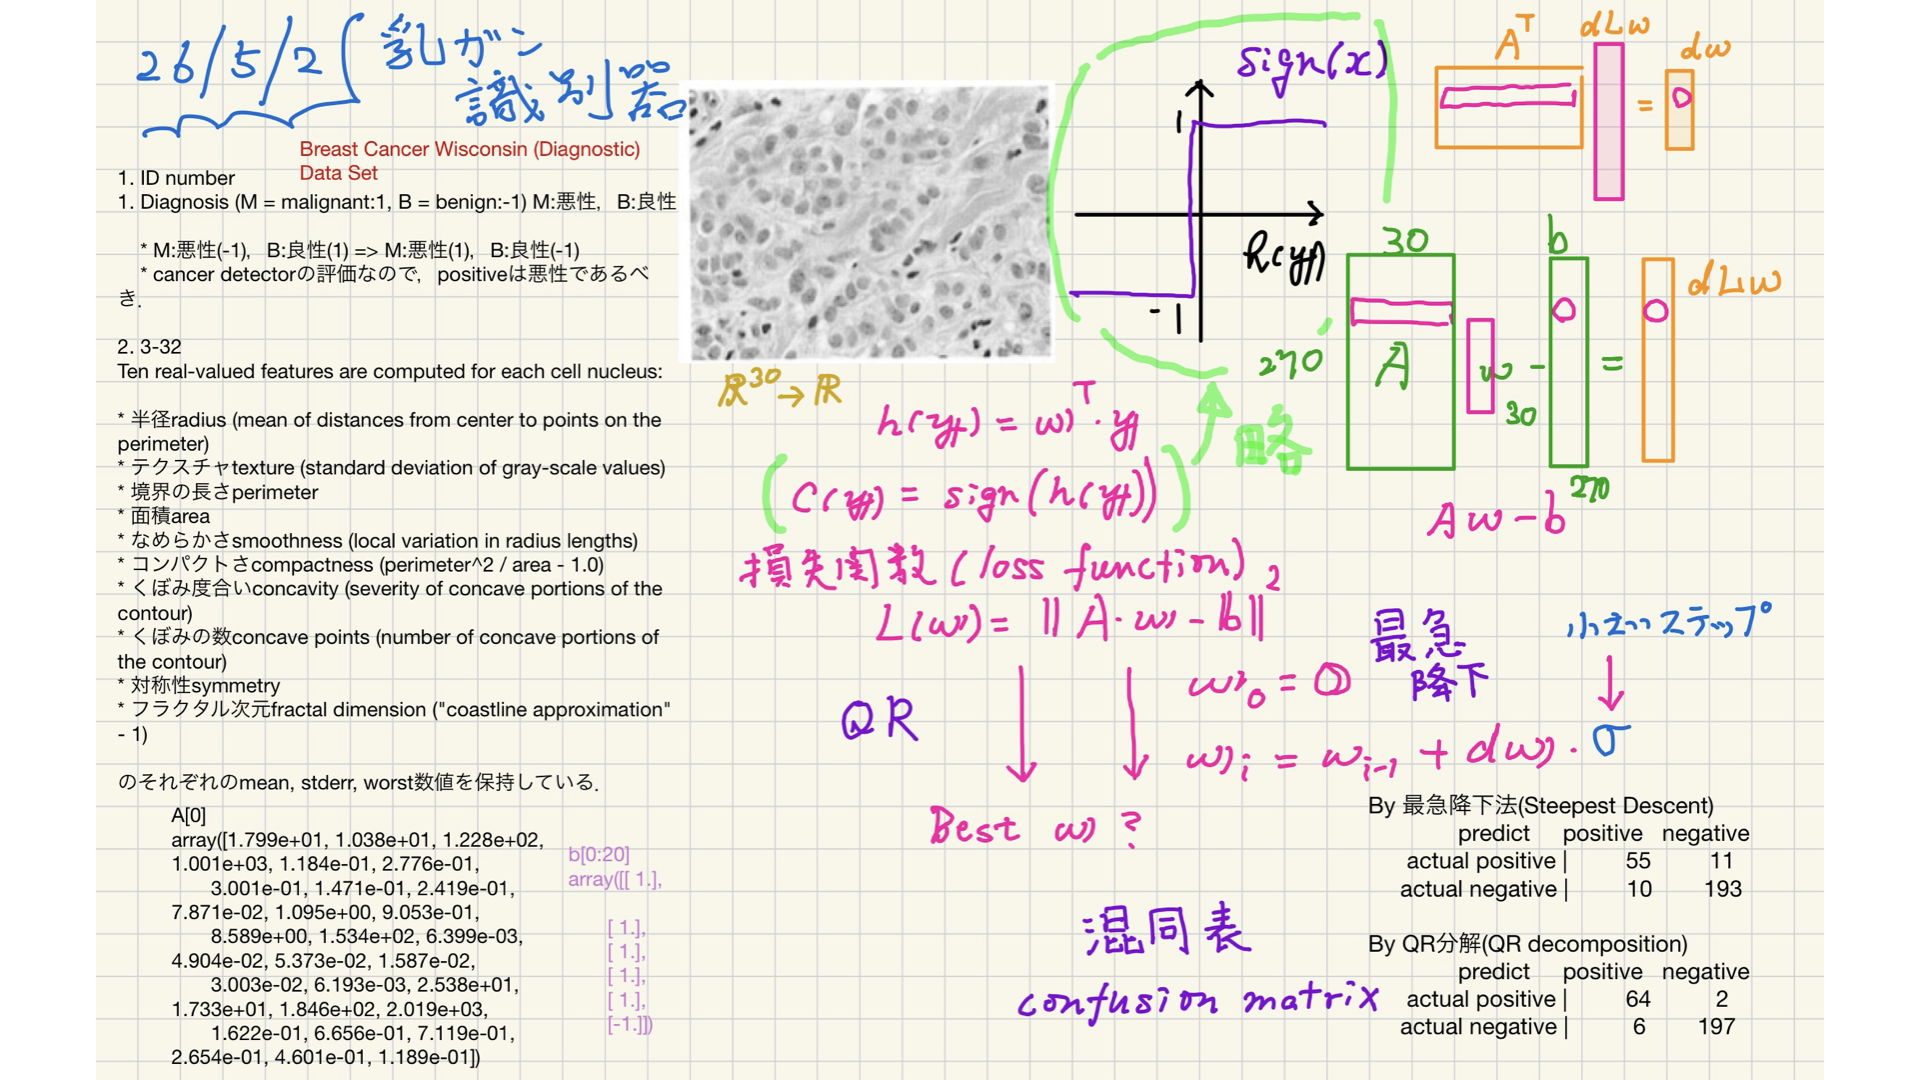 26/5/2 乳ガン
識別器
Breast Cancer Wisconsin (Diagnostic)
Data Set
1. ID number
1. Diagnosis (M = malignant:1, B = benign:-1) M:悪性, B:良性
* M:悪性(-1), B:良性(1) => M:悪性(1), B:良性(-1)
* cancer detectorの評価なので, positiveは悪性であるべ
き.
2. 3-32
Ten real-valued features are computed for each cell nucleus:
* 半径radius (mean of distances from center to points on the
perimeter)
* テクスチャtexture (standard deviation of gray-scale values)
* 境界の長さperimeter
* 面積area
* なめらかさsmoothness (local variation in radius lengths)
* コンパクトさcompactness (perimeter^2 / area - 1.0)
* くぼみ度合いconcavity (severity of concave portions of the
contour)
* くぼみの数concave points (number of concave portions of
the contour)
* 対称性symmetry
* フラクタル次元fractal dimension ("coastline approximation"
- 1)
のそれぞれのmean, stderr, worst数値を保持している.
A[0]
array([1.799e+01, 1.038e+01, 1.228e+02,
1.001e+03, 1.184e-01, 2.776e-01,
3.001e-01, 1.471e-01, 2.419e-01,
7.871e-02, 1.095e+00, 9.053e-01,
8.589e+00, 1.534e+02, 6.399e-03,
4.904e-02, 5.373e-02, 1.587e-02,
3.003e-02, 6.193e-03, 2.538e+01,
1.733e+01, 1.846e+02, 2.019e+03,
1.622e-01, 6.656e-01, 7.119e-01,
2.654e-01, 4.601e-01, 1.189e-01])
b[0:20]
array([[ 1.],
[ 1.],
[ 1.],
[ 1.],
[ 1.],
[-1.]])
sign(x)
1
h(y)
-1
ℝ³⁰ → ℝ
h(y) = wᵀ・y
(C(y) = sign(h(y)))
略
損失関数 (loss function)
L(w) = ||A・w - b||²
QR
最急
降下
w₀ = 0
小さいステップ
wᵢ = wᵢ₋₁ + dw・σ
Best w ?
混同表
confusion matrix
Aᵀ dLw = dw
30 b
270 A w - = dLw
30
270
Aw - b
By 最急降下法(Steepest Descent)
predict positive negative
actual positive | 55 11
actual negative | 10 193
By QR分解(QR decomposition)
predict positive negative
actual positive | 64 2
actual negative | 6 197